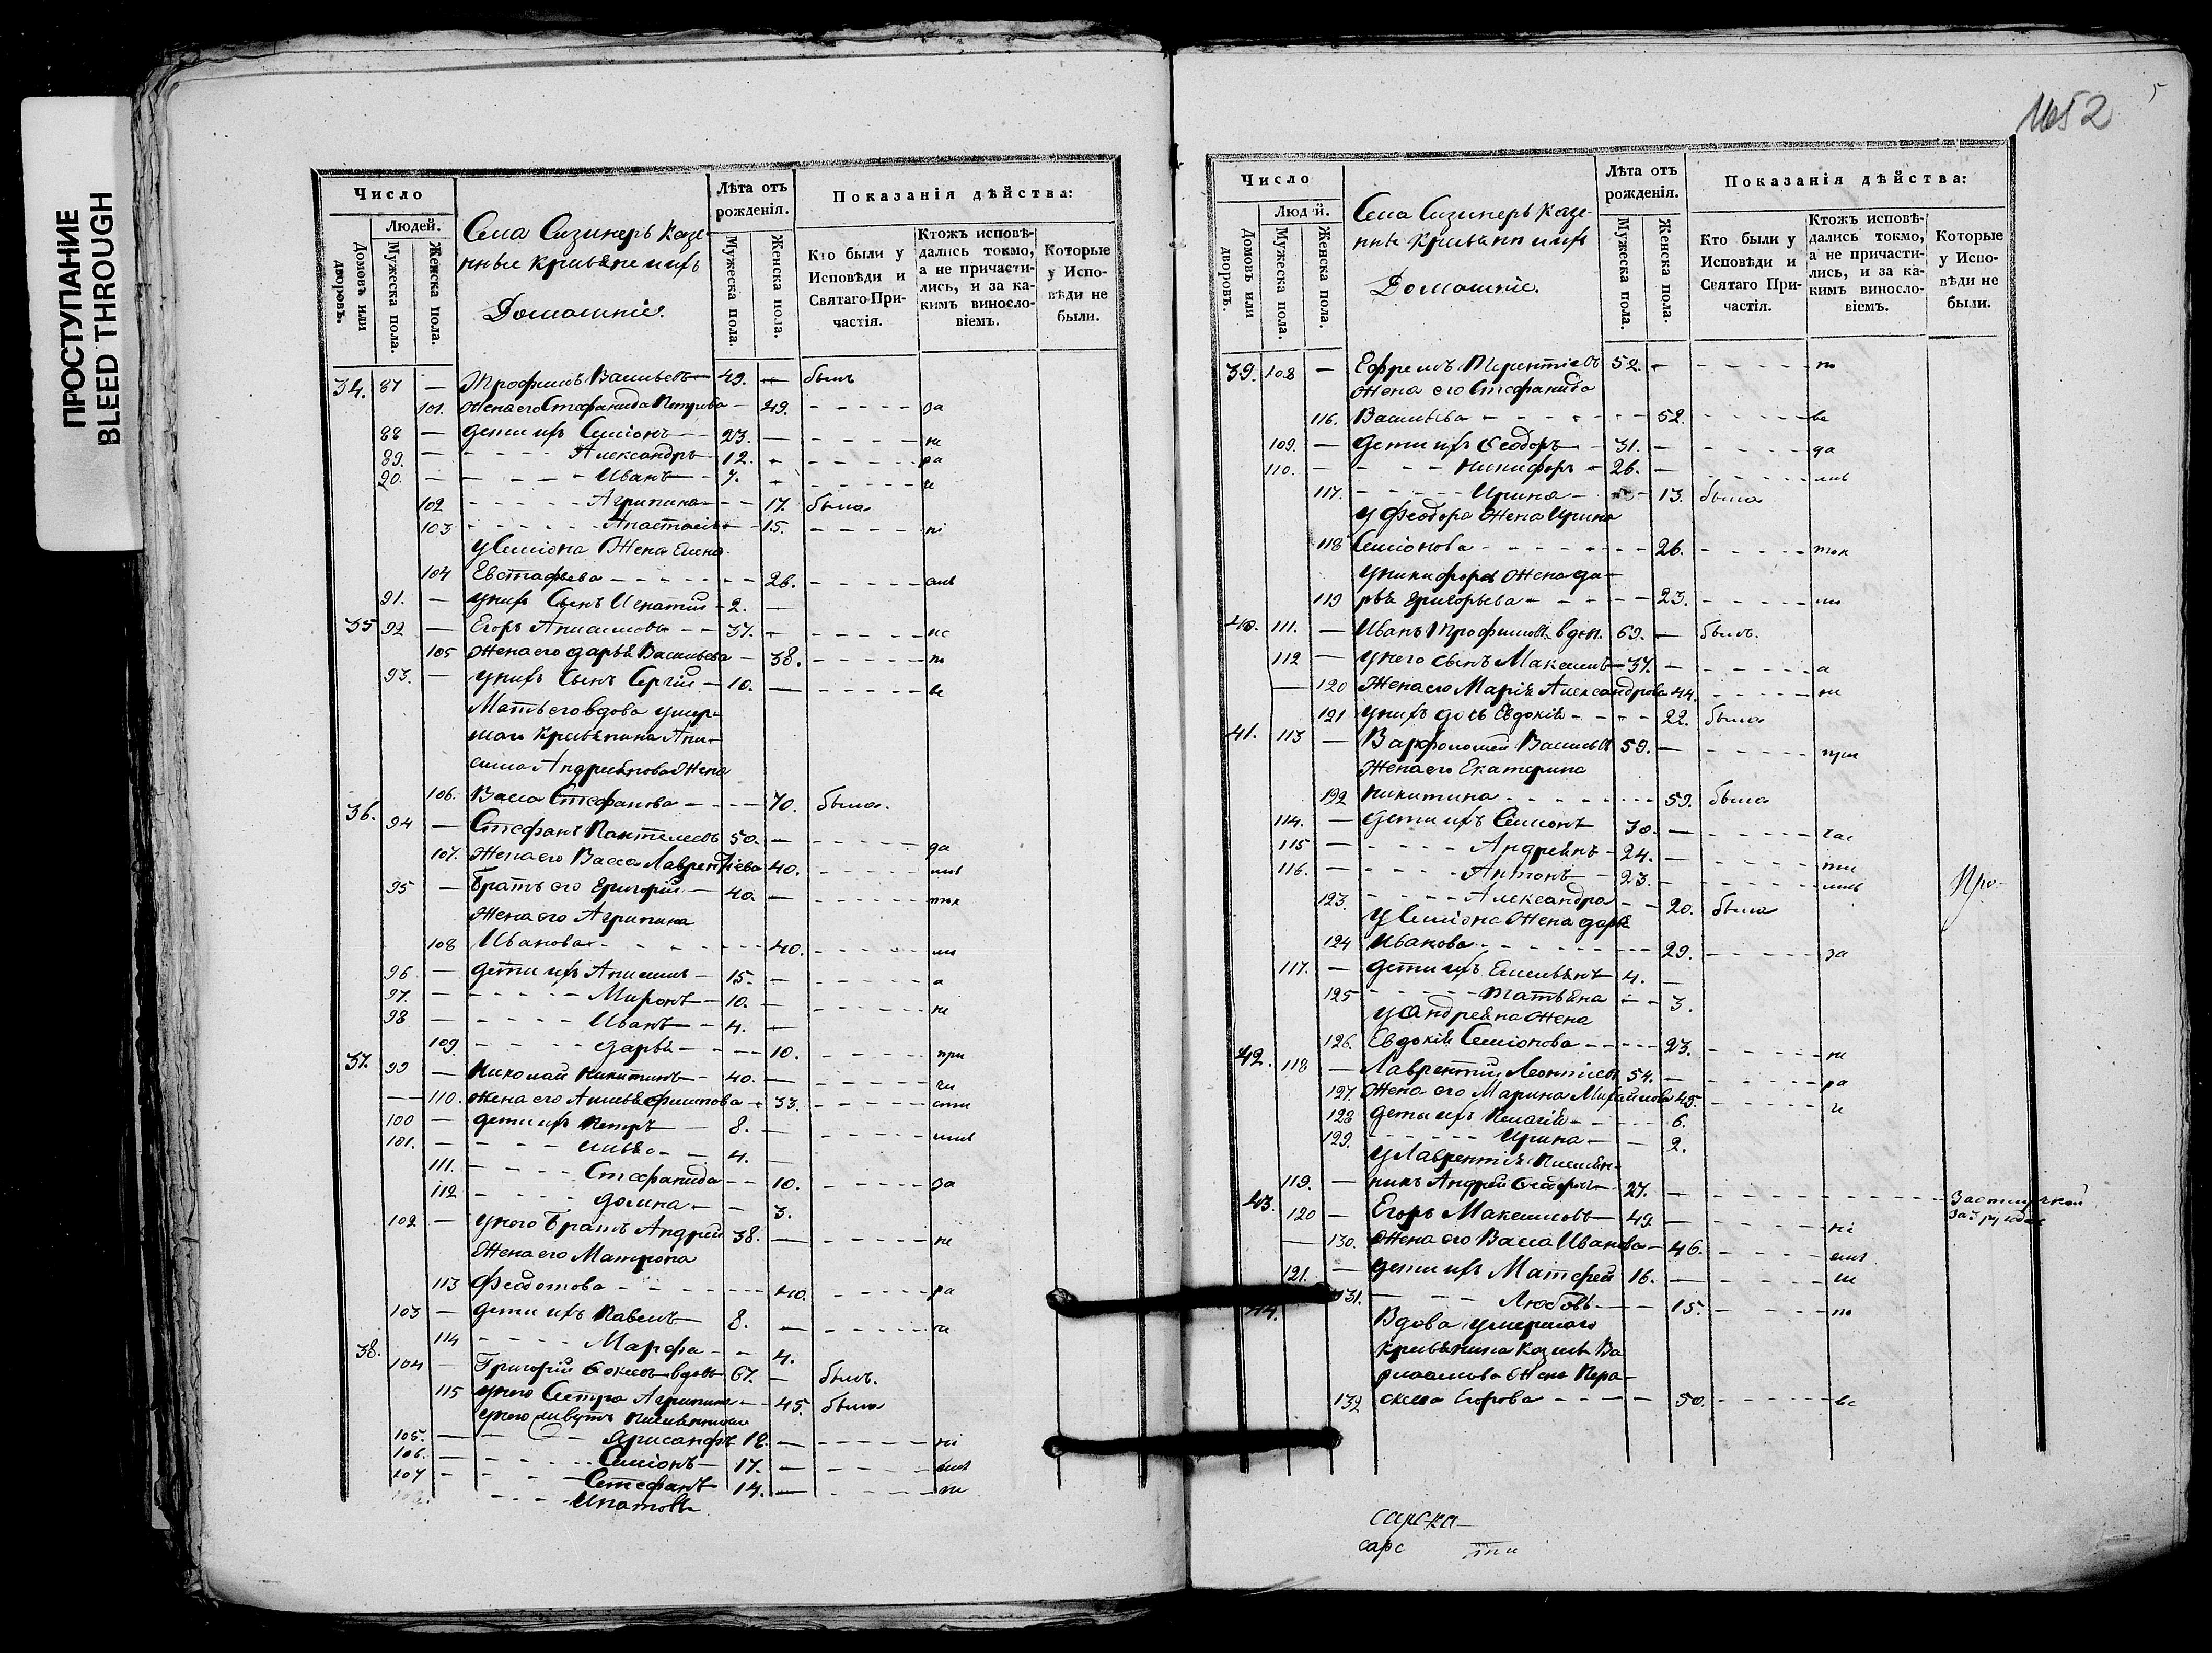 ПРОСТУПАНИЕ
BLEED THROUGH
Число
Людей.
Домовъ или дворовъ.
Мужеска пола.
Женска пола.
Села Сизинеръ казе-
нные крестьяне и ихъ
Домашніе.
Лѣта отъ рожденія.
Мужеска пола.
Женска пола.
Показанія дѣйства:
Кто были у Исповѣди и Святаго Причастія.
Ктожъ исповѣдались токмо, а не причастились, и за какимъ винословіемъ.
Которые у Исповѣди не были.
34. 87 — Трофимъ Васильевъ — 49. — былъ
101. Жена его Стефанида Петрова — 49. - - - - - за
88 — Дети ихъ Симіонъ — 23. — - - - - - не
89. — - - - - Александръ — 12. - - - - - - ра
90. — - - - - Иванъ — 7. - - - - - - че
102 - - - - - Агрипина - - 17. была
103 - - - - - Анастасія - 15. - - - - - ні
у Симіона Жена Елена
104 Евстафьева - - - - - 26. - - - - - емъ
91. — у нихъ Сынъ Игнатій - 2. —
35 92 — Егоръ Анисимовъ - - 37. - - - - - - ис
105 Жена его Дарья Васильева — 38. - - - - - по
93. — у нихъ Сынъ Сергій — 10. — - - - - - ве
Мать его вдова умер-
шаго крестьянина Ани-
сима Андреянова Жена
106. Васса Стефанова - - - - 70. была.
36. 94 — Стефанъ Пантелеевъ 50. — - - - - - да
107. Жена его Васса Лаврентіева 40. - - - - - ліь
95 — Братъ его Григорій — 40. — - - - - - ток
Жена его Агрипина
108 Иванова - - - - - 40. - - - - - мо
96 — Дети ихъ Анисимъ — 15. - - - - - - а
97. — - - - - Миронъ — 10. — - - - - - не
98 — - - - - Иванъ — 4. —
109. - - - - Дарья - - - 10. - - - - - при
37. 99 — Николай Никитинъ — 40. — - - - - - ча
— 110. Жена его Анисья Филипова - 33. - - - - - сти
100 — Дети ихъ Петръ — 8. — - - - - - лиь
101. — - - - Илья - - 4. —
111. - - - - Стефанида - - 10. - - - - - за
112 - - - - Домна - - 3.
102 — у него Братъ Андрей 38. — - - - - - не
Жена его Матрона
113 Федотова - - - - - 40. - - - - - ра
103 — Дети ихъ Павелъ 8. — - - - - - че
114 - - - - Марфа - - 4.
38. 104 — Григорій Фокеевъ вдовъ 67. — былъ.
115 у него Сестра Агрипина - - 45. была
у него живутъ племянники
105. — - - - 18. — - - - - - ні
106. — - - - - Симіонъ — 17. — - - - - - емъ
107 - - - - Стефанъ 14. — - - - - - по
- - - Ипатовы
1652
Число
Людей.
Домовъ или дворовъ.
Мужеска пола.
Женска пола.
Села Сизинеръ казе-
нные крестьяне и ихъ
Домашніе.
Лѣта отъ рожденія.
Мужеска пола.
Женска пола.
Показанія дѣйства:
Кто были у Исповѣди и Святаго Причастія.
Ктожъ исповѣдались токмо, а не причастились, и за какимъ винословіемъ.
Которые у Исповѣди не были.
39. 108 — Ефремъ Терентіевъ 52. - - - - - - по
Жена его Стефанида
116. Васильева - - - - - 52. - - - - - ве
109. — Дети ихъ Феодоръ — 31. — - - - - - да
110. — - - - Никифоръ - 26. — - - - - - лиь
117. - - - - - Ирина - - 13. была
у Феодора Жена Ирина
118 Симіонова - - - - - 26. - - - - - ток
у Никифора Жена Да-
119 рья Григорьева - - - - 23. - - - - - мо
40. 111. — Иванъ Трофимовъ вдов. 69. — былъ.
112 — у него сынъ Максимъ — 37. — - - - - - а
— 120 Жена его Марія Александрова 44. - - - - - не
121 у нихъ дочь Евдокія - - - - 22. была
41. 113 — Варфоломей Васильевъ 59. — - - - - - при
Жена его Екатерина
122 Никитина - - - - - 59. была
114. — Дети ихъ Симіонъ 30. — - - - - - час
115 — - - - - Андреянъ - 24. — - - - - - ти
116. — - - - - Антонъ — 23. — - - - - - лиь
123. - - - - Александра - - 20. была
у Симіона Жена Дарья
124 Иванова - - - - - 29. - - - - - за
117. — Дети ихъ Емельянъ 4. —
125 - - - - Татьяна - - 3.
у Андреяна Жена
126. Евдокія Симіонова - - - - 23. - - - - - не
42. 118 — Лаврентій Леонтіевъ 54. — - - - - - ра
127. Жена его Марина Михайлова 45. - - - - - че
128 Дети ихъ Пелагія - - - - 6.
129. - - - - Ирина - - 2.
у Лаврентія Племян-
119. — никъ Андрей Федоръ 27. — - - - - - За отлучкой
43. 120 — Егоръ Максимовъ — 49. — - - - - - ні
— 130. Жена его Васса Иванова — 46. - - - - - емъ
121. — Дети ихъ Матфей 16. — - - - - - ис
131. — - - Любовь - - 15. - - - - - по
44. Вдова умершаго
крестьянина Козьмы Ва
Жена Пера-
132 скева Егорова - - - - 50. - - - - - ве
сарска
сарс